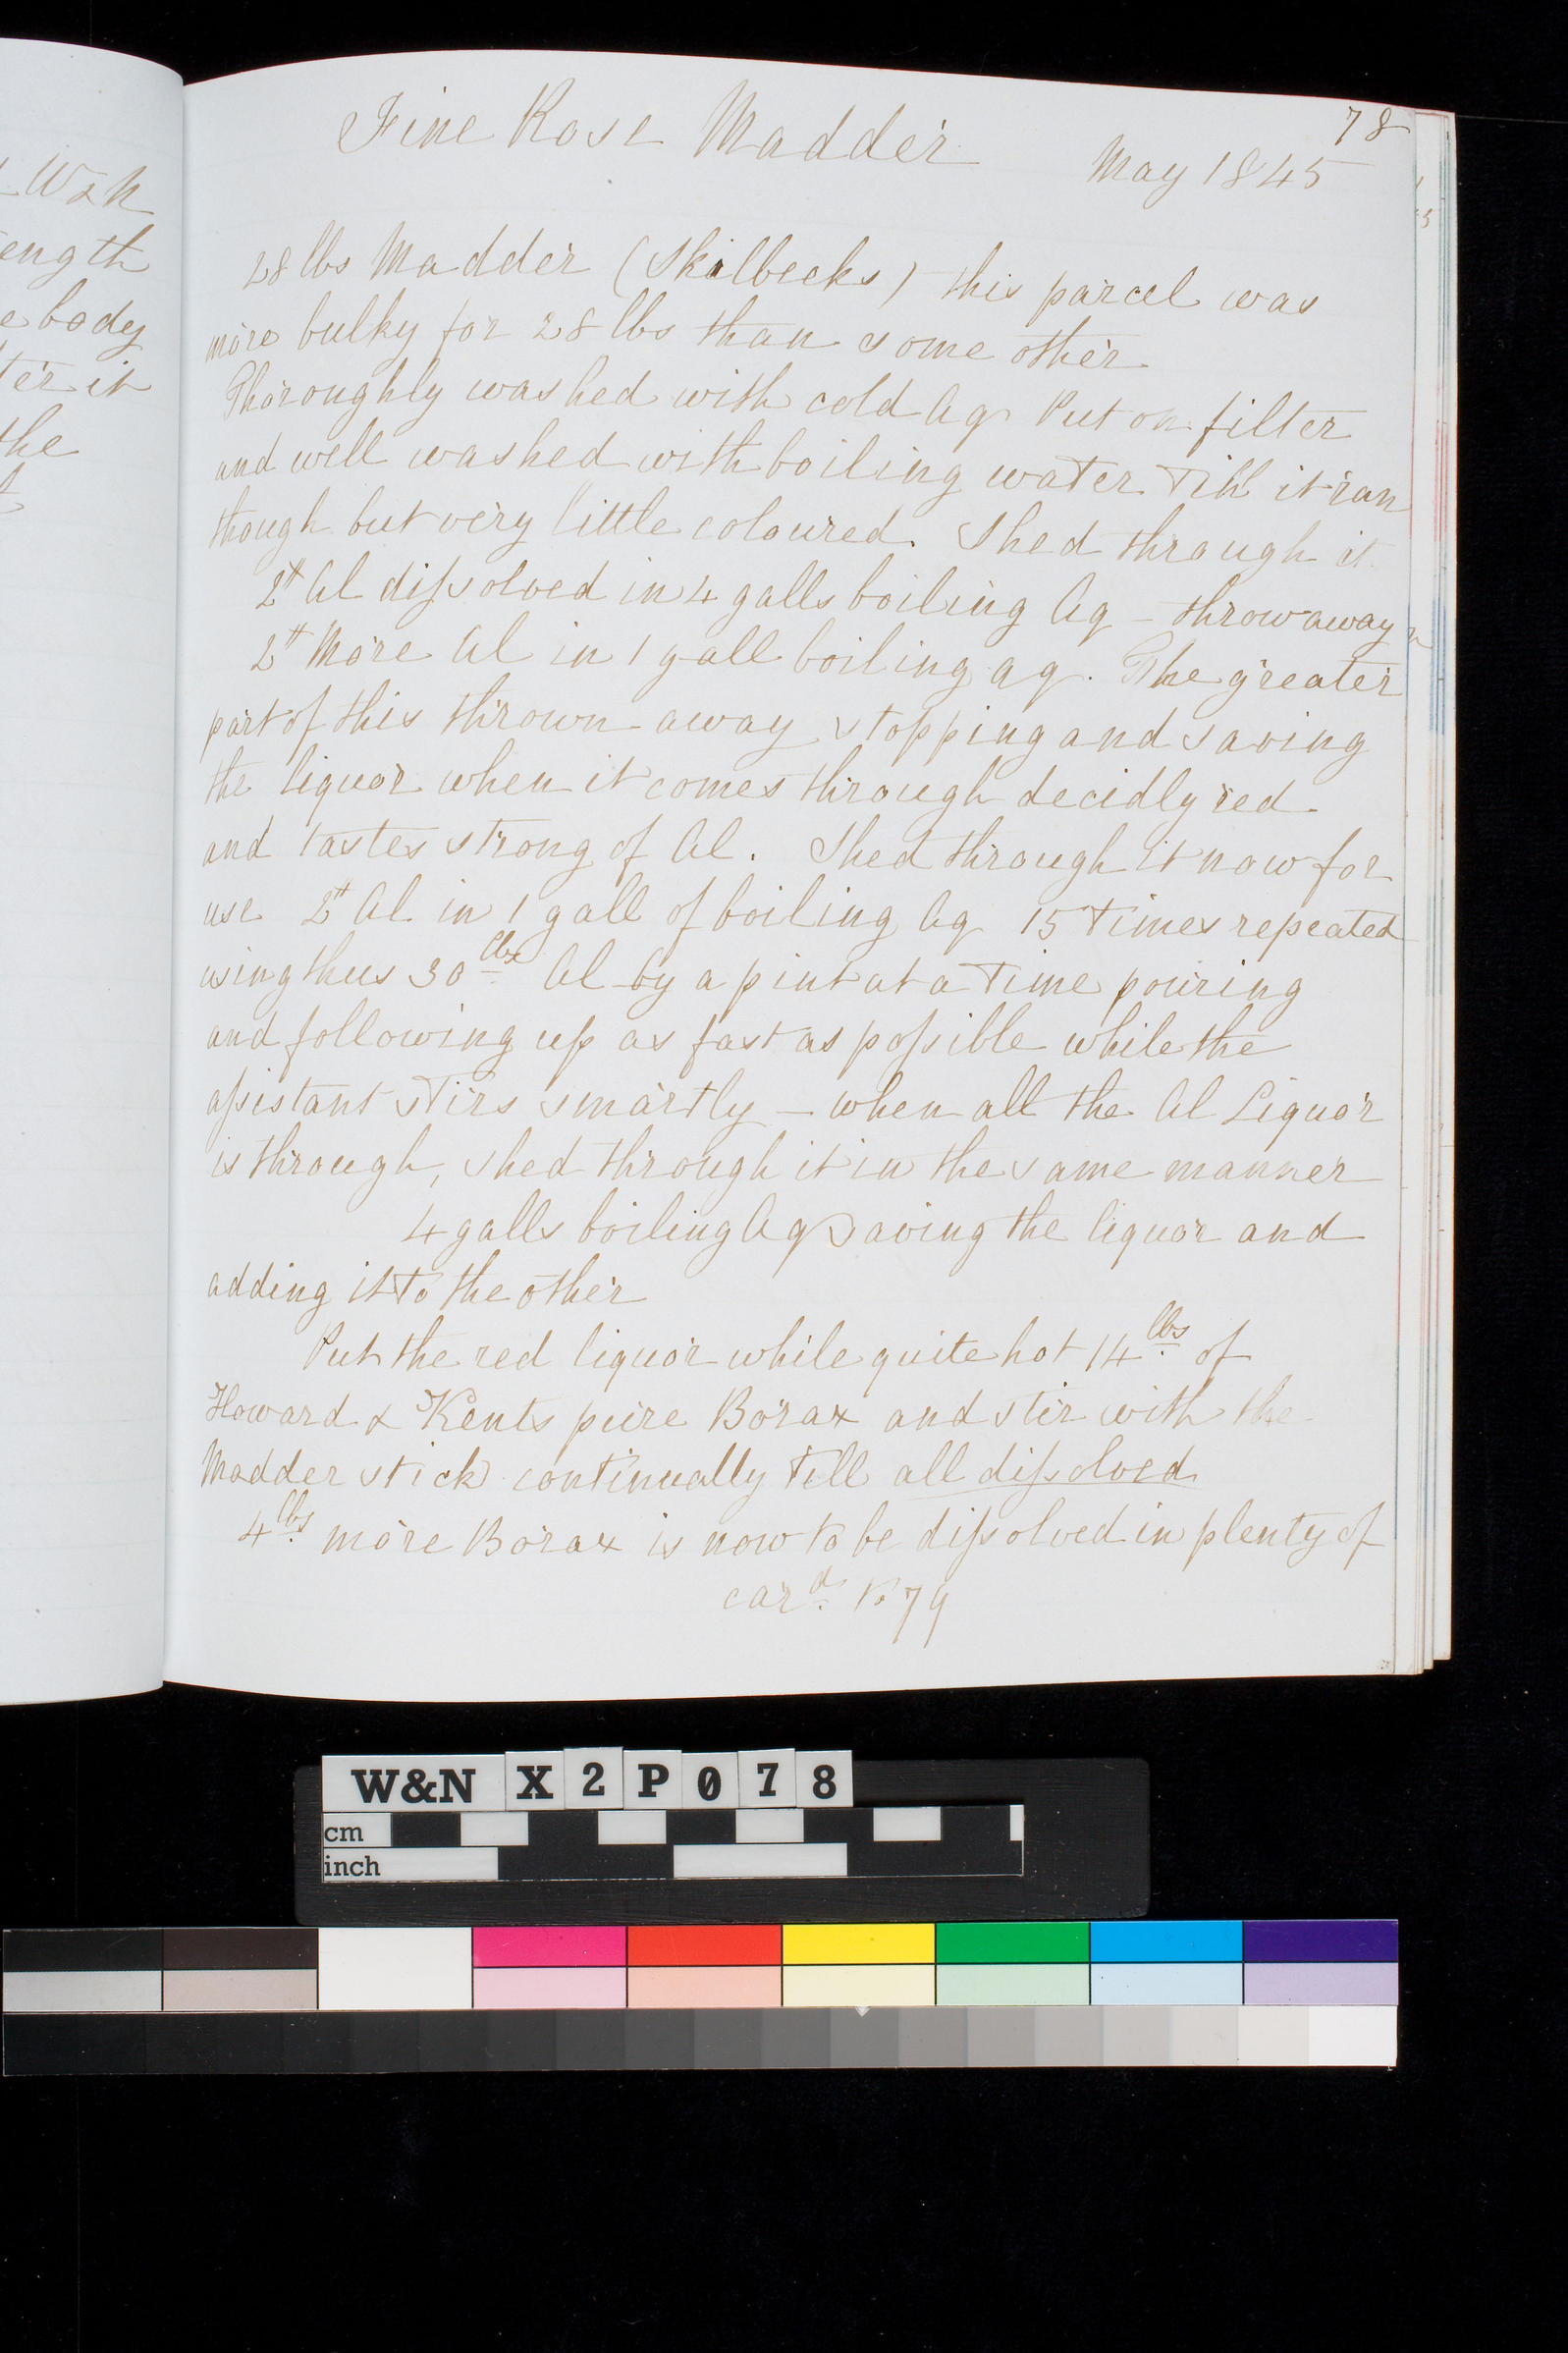 78
Fine Rose Madder
May 1845
28 lbs Madder (Skilbecks) this parcel was
more bulky for 28 lbs than some other
Thoroughly washed with cold Aq Put on filter
and well washed with boiling water till it ran
though but very little coloured. Shed through it
2# Al dissolved in 4 galls boiling Aq – throw away
2# More Al in 1 gall boiling aq. The greater
part of this thrown away stopping and saving
the liquor when it comes through decidly red
and tastes strong of Al. Shed through it now for
use 2# Al in 1 gall of boiling Aq 15 times repeated
using thus 30 lbs Al by a pint at a time pouring
and following up as fast as possible while the
assistant stirs smartly – when all the Al Liquor
is through, shed through it in the same manner
4 galls boiling Aq saving the liquor and
adding it to the other
Put the red liquor while quite hot 14 lbs of
Howard & Kents pure Borax and stir with the
Madder stick continually till all dissolved
4 lbs more Borax is now to be dissolved in plenty of
card to 79
Wsh
ength
e body
ter it
the
W&N X2P078
cm
inch